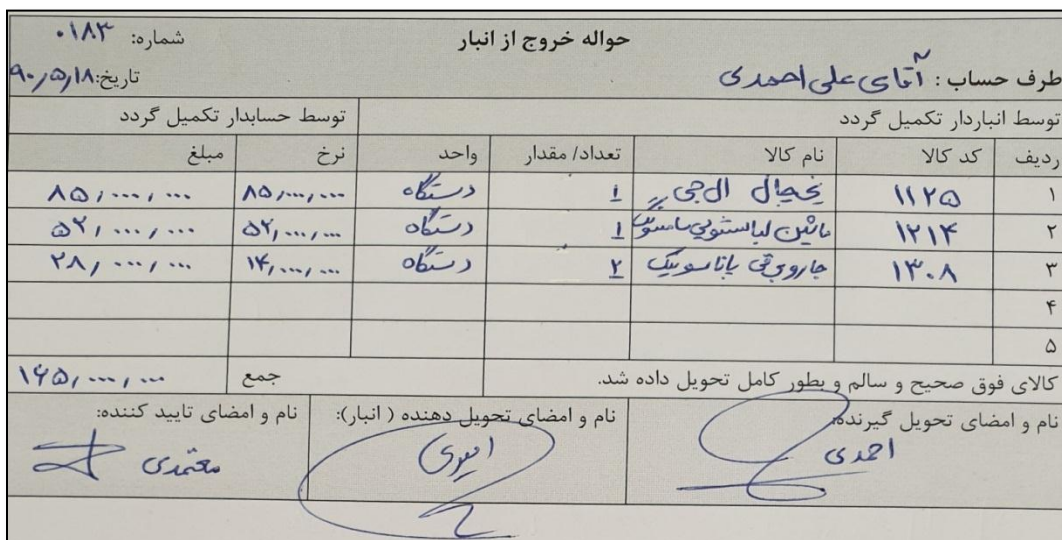 حواله خروج از انبار
شماره: ۰۱۸۳
طرف حساب: آقای علی احمدی
تاریخ: ۹۰٫۵٫۱۸
توسط انباردار تکمیل گردد توسط حسابدار تکمیل گردد
ردیف کد کالا نام کالا تعداد/ مقدار واحد نرخ مبلغ
۱ ۱۱۲۵ یخچال ال جی ۱ دستگاه ۸۵,۰۰۰,۰۰۰ ۸۵,۰۰۰,۰۰۰
۲ ۱۲۱۴ ماشین لباسشویی سامسونگ ۱ دستگاه ۵۲,۰۰۰,۰۰۰ ۵۲,۰۰۰,۰۰۰
۳ ۱۳۰۸ جاروبرقی پاناسونیک ۲ دستگاه ۱۴,۰۰۰,۰۰۰ ۲۸,۰۰۰,۰۰۰
۴
۵
کالای فوق صحیح و سالم و بطور کامل تحویل داده شد. جمع ۱۶۵,۰۰۰,۰۰۰
نام و امضای تحویل گیرنده: نام و امضای تحویل دهنده ( انبار): نام و امضای تایید کننده:
احمدی معتمدی